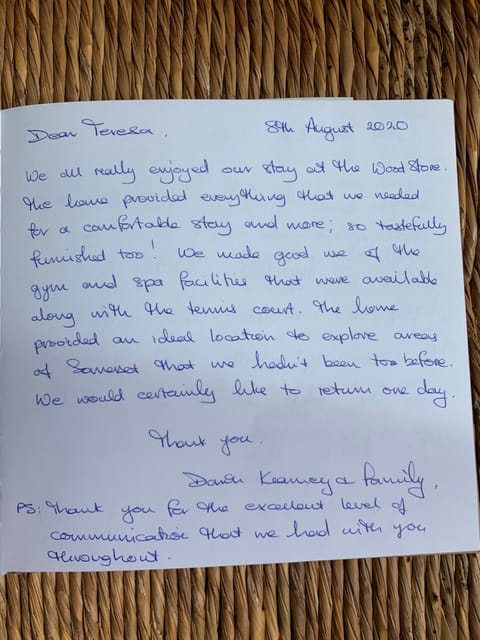 Dear Teresa,
8th August 2020
We all really enjoyed our stay at the Wood Store.
The home provided everything that we needed
for a comfortable stay and more; so tastefully
furnished too! We made good use of the
gym and spa facilities that were available
along with the tennis court. The home
provided an ideal location to explore areas
of Somerset that we hadn't been too before.
We would certainly like to return one day.
Thank you.
Dawn Kearney & family,
PS: Thank you for the excellent level of
communication that we had with you
throughout.